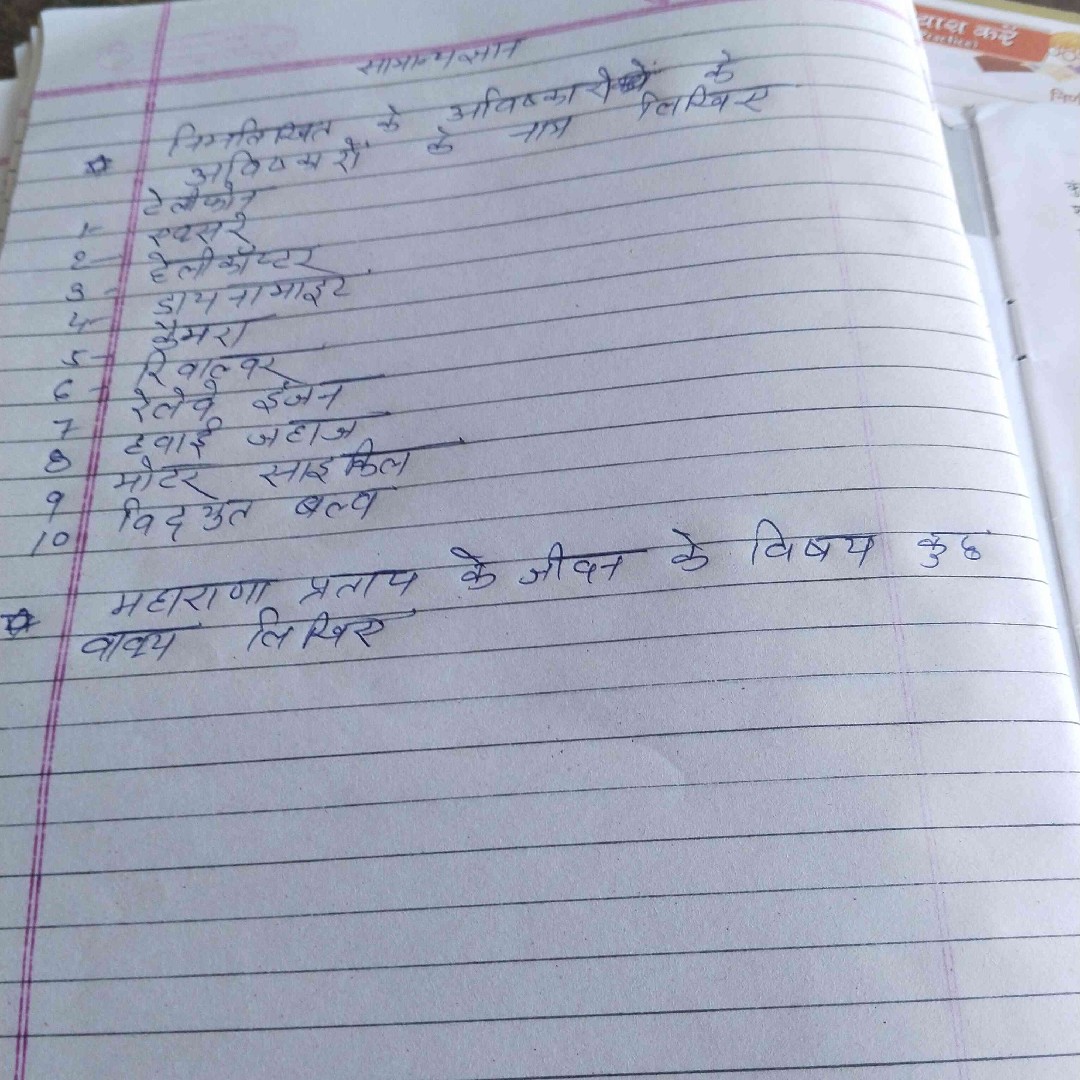 सामान्य ज्ञान
निम्नलिखित के अविष्कारो के
अविष्कारों के नाम लिखिए
1- टेलीफोन
2- एक्सरे
3- हेलीकॉप्टर
4- डायनामाइट
5- कैमरा
6- रिवाल्वर
7 रेलवे इंजन
8 हवाई जहाज
9 मोटर साइकिल
10 विद्युत बल्व
महाराणा प्रताप के जीवन के विषय कुछ
वाक्य लिखिए
कारें